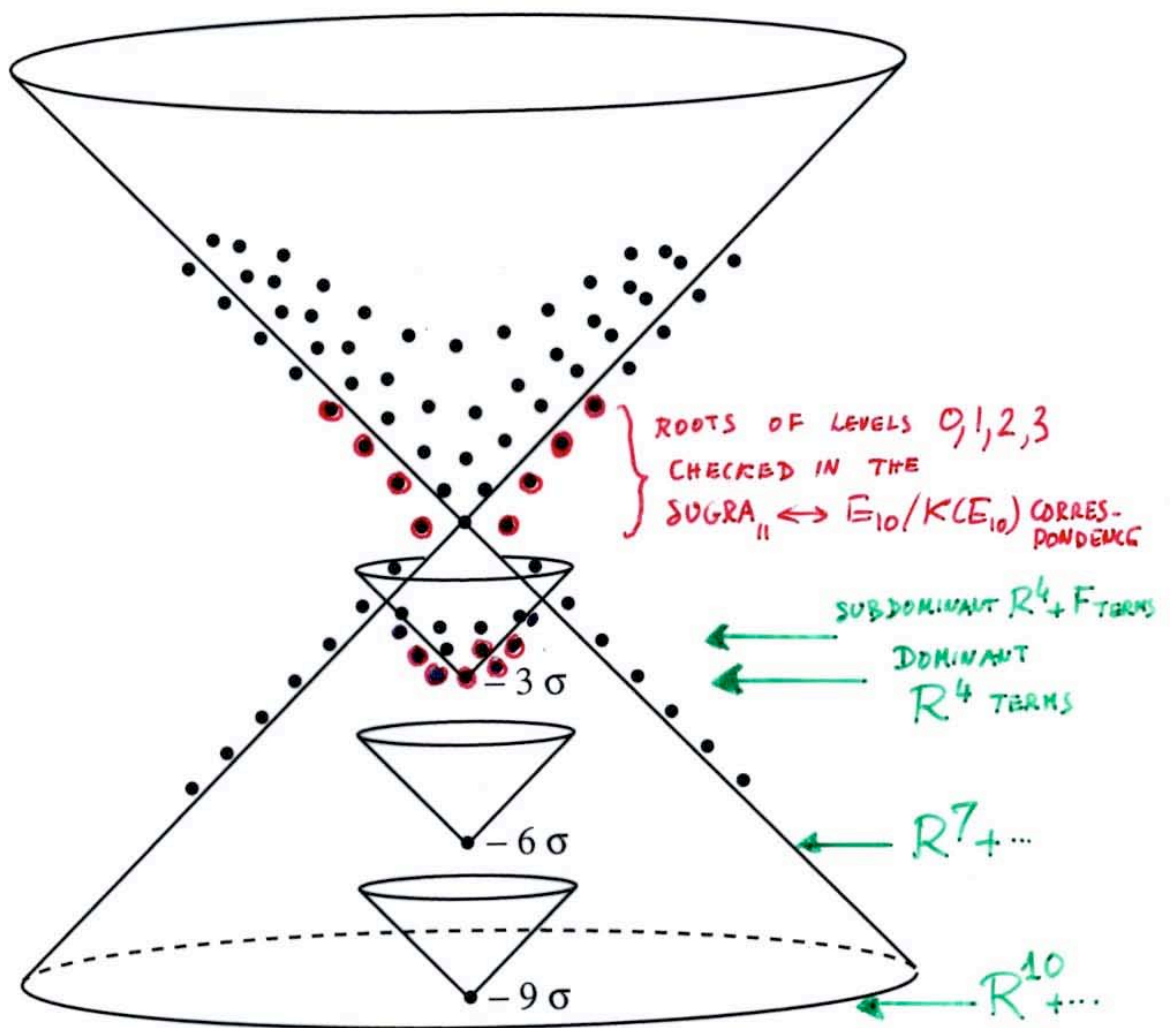 ROOTS OF LEVELS 0,1,2,3
CHECKED IN THE
SUGRA₁₁ ↔ E₁₀/K(E₁₀) CORRES-
PONDENCE
SUBDOMINANT R⁴ + F TERMS
DOMINANT
R⁴ TERMS
− 3 σ
− 6 σ
R⁷ + ...
− 9 σ
R¹⁰ + ...